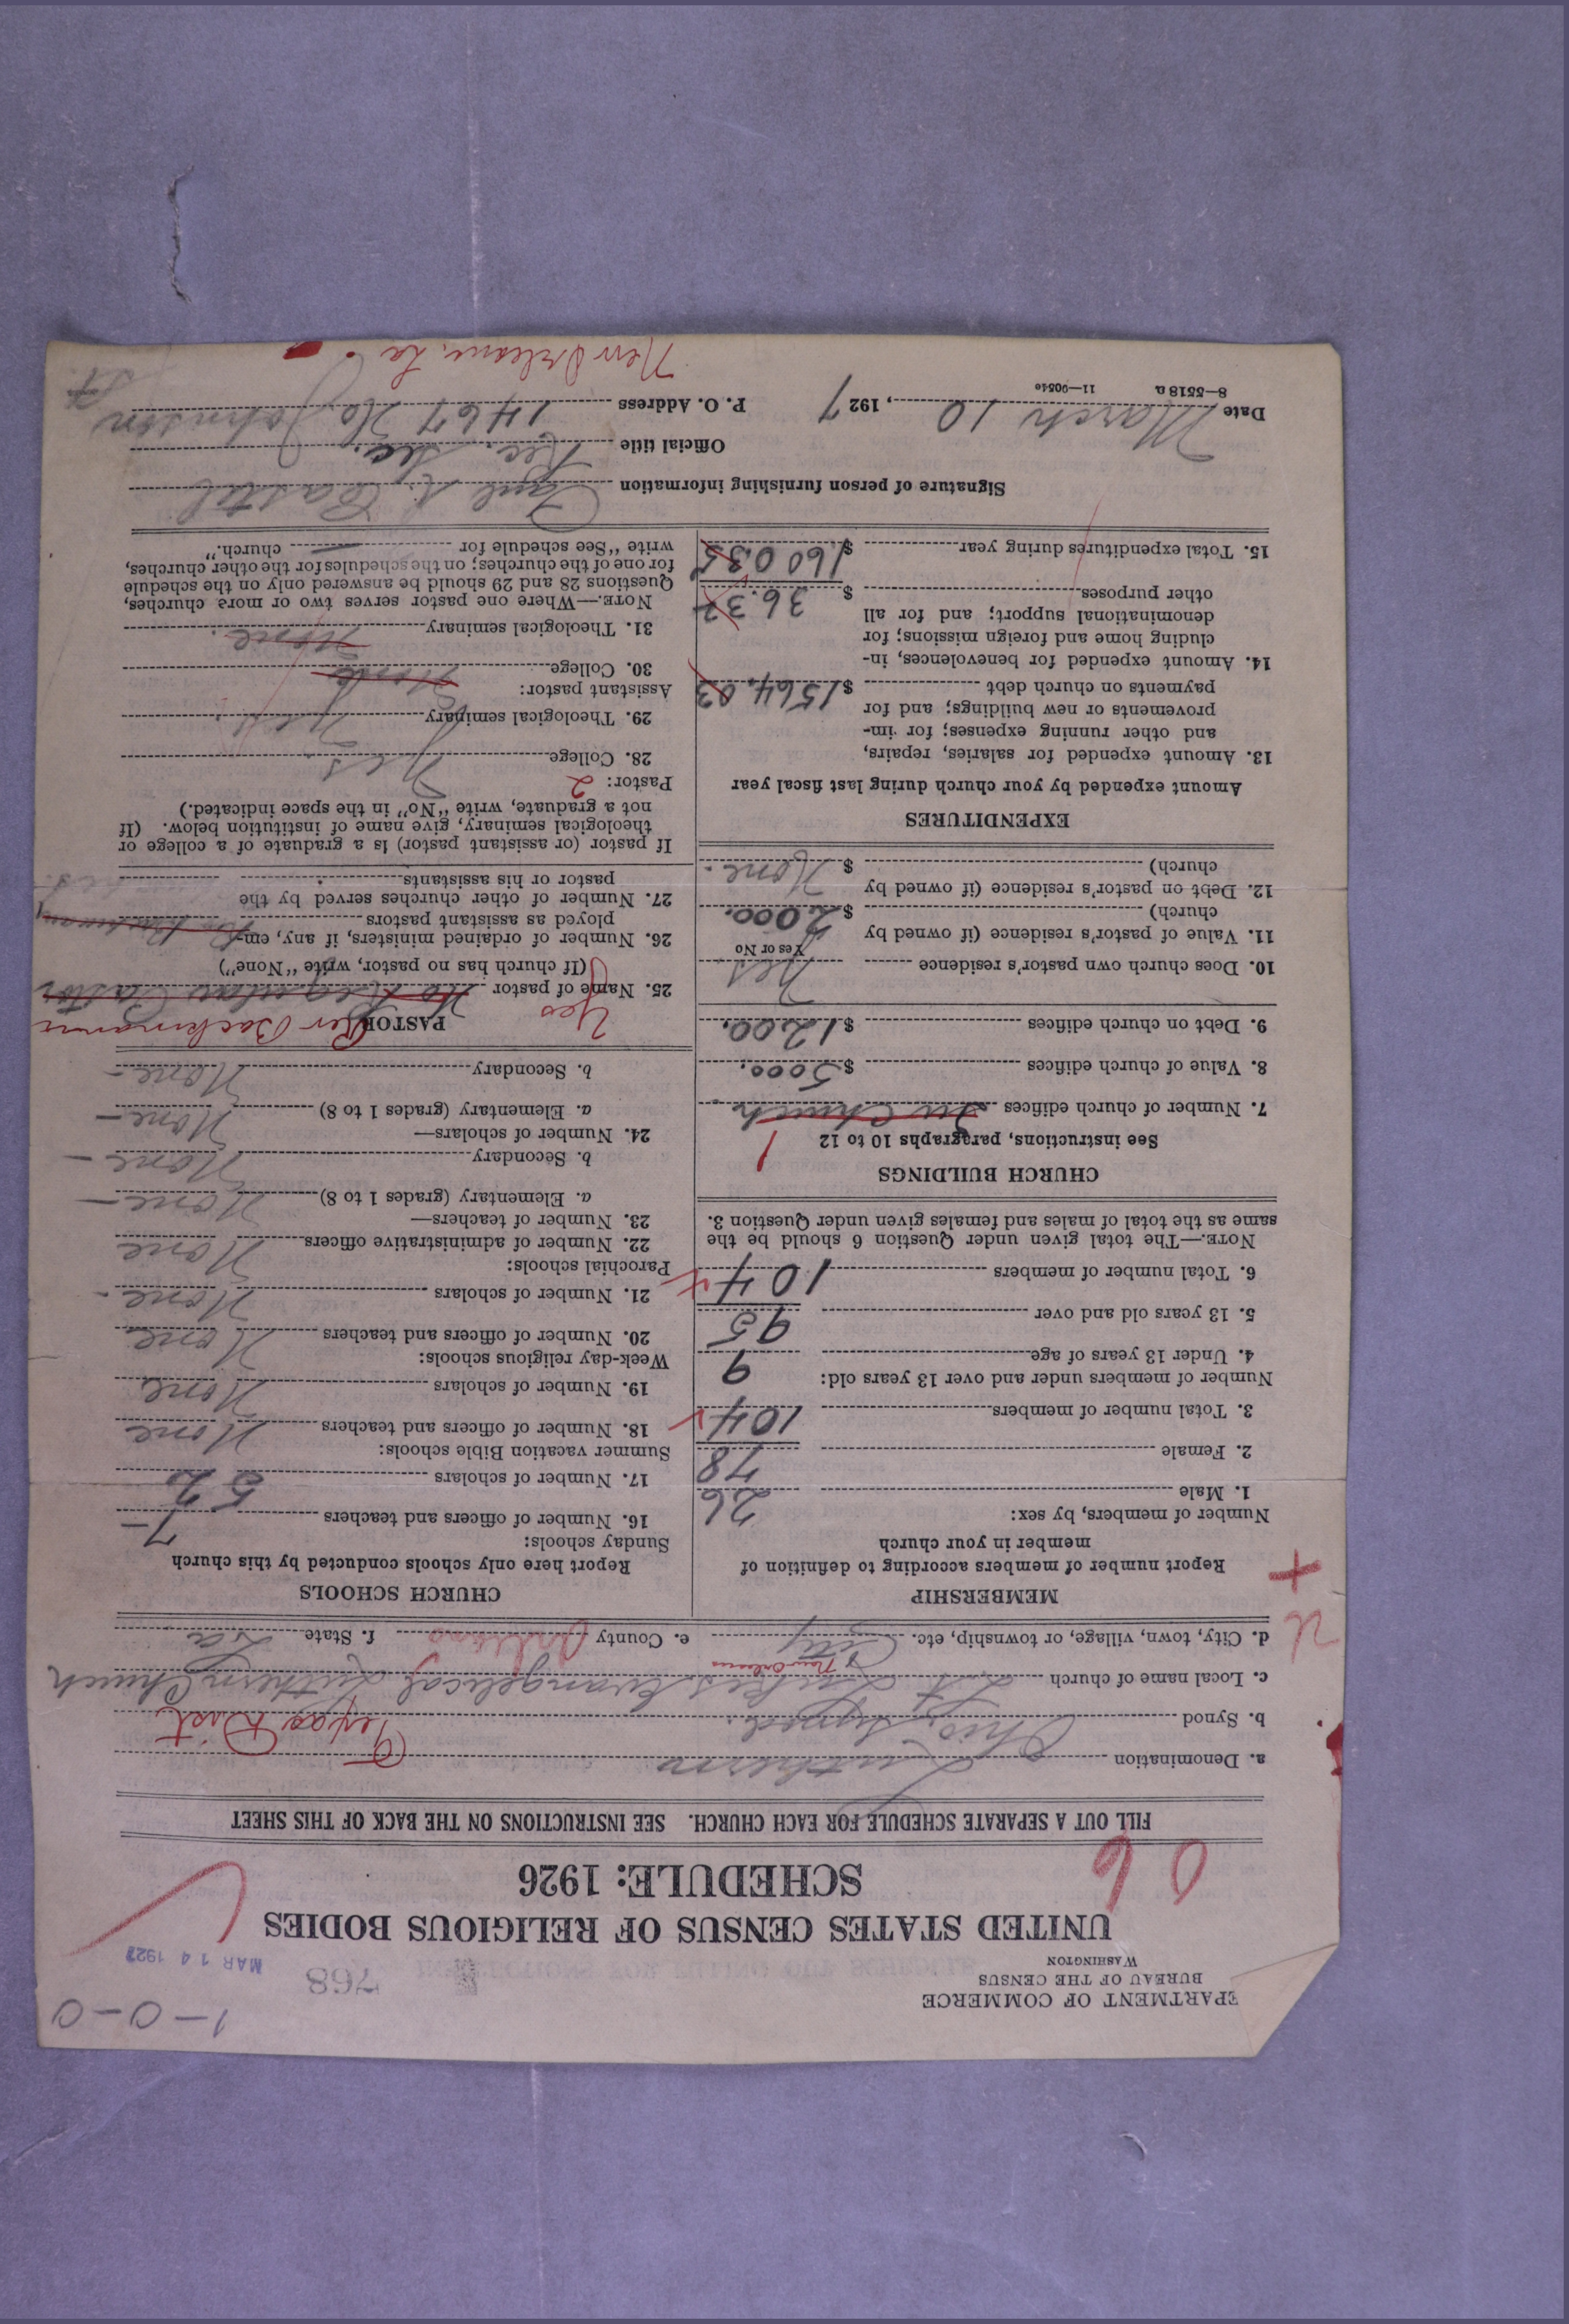 1-0-0
768
MAR 14 1927
EPARTMENT OF COMMERCE
BUREAU OF THE CENSUS
WASHINGTON
UNITED STATES CENSUS OF RELIGIOUS BODIES
SCHEDULE: 1926
06
FILL OUT A SEPARATE SCHEDULE FOR EACH CHURCH. SEE INSTRUCTIONS ON THE BACK OF THIS SHEET
a. Denomination Lutheran
b. Synod Ohio Synod. Texas Dist
c. Local name of church St Lukes Evangelical Lutheran Church
New Orleans
d. City, town, village, or township, etc. City e. County Orleans f. State La
MEMBERSHIP
Report number of members according to definition of
member in your church
Number of members, by sex:
1. Male 26
2. Female 78
3. Total number of members 104
Number of members under and over 13 years old:
4. Under 13 years of age 9
5. 13 years old and over 95
6. Total number of members 104
NOTE.—The total given under Question 6 should be the
same as the total of males and females given under Question 3.
CHURCH BUILDINGS
See instructions, paragraphs 10 to 12
1
7. Number of church edifices
8. Value of church edifices $5000.
9. Debt on church edifices $1200.
10. Does church own pastor's residence Yes
Yes or No
11. Value of pastor's residence (if owned by
church) $2000.
12. Debt on pastor's residence (if owned by
church) $ None.
EXPENDITURES
Amount expended by your church during last fiscal year
13. Amount expended for salaries, repairs,
and other running expenses; for im-
provements or new buildings; and for
payments on church debt $1564.03
14. Amount expended for benevolences, in-
cluding home and foreign missions; for
denominational support; and for all
other purposes $ 36.32
15. Total expenditures during year $1600.35
CHURCH SCHOOLS
Report here only schools conducted by this church
Sunday schools:
16. Number of officers and teachers 7
17. Number of scholars 52
Summer vacation Bible schools:
18. Number of officers and teachers None
19. Number of scholars None
Week-day religious schools:
20. Number of officers and teachers None
21. Number of scholars None
Parochial schools:
22. Number of administrative officers None
23. Number of teachers—
a. Elementary (grades 1 to 8) None
b. Secondary None
24. Number of scholars—
a. Elementary (grades 1 to 8) None
b. Secondary None
PASTOR Rev Backmann
Yes
25. Name of pastor No Regular Pastor
(If church has no pastor, write "None")
26. Number of ordained ministers, if any, em-
ployed as assistant pastors
27. Number of other churches served by the
pastor or his assistants
If pastor (or assistant pastor) is a graduate of a college or
theological seminary, give name of institution below. (If
not a graduate, write "No" in the space indicated.)
Pastor: 2
28. College Yes
29. Theological seminary Yes
Assistant pastor:
30. College None
31. Theological seminary None
NOTE.—Where one pastor serves two or more churches,
Questions 28 and 29 should be answered only on the schedule
for one of the churches; on the schedules for the other churches,
write "See schedule for church."
Signature of person furnishing information
Official title Rec. Sec.
Date March 10, 1927 P. O. Address 1467 No Johnson
St.
8—5518 a 11—9054e
New Orleans La.